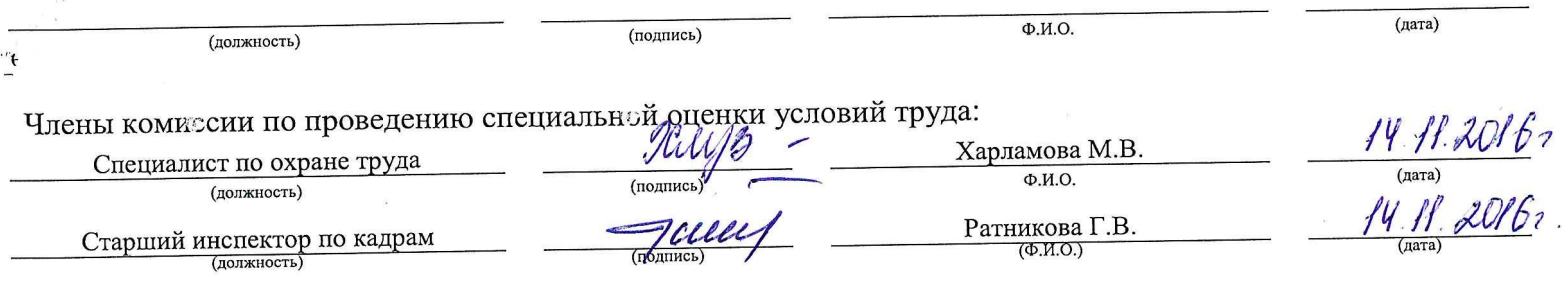 (должность) (подпись) Ф.И.О. (дата)
Члены комиссии по проведению специальной оценки условий труда:
Специалист по охране труда Харламова М.В. 14.11.2016г
(должность) (подпись) Ф.И.О. (дата)
Старший инспектор по кадрам Ратникова Г.В. 14.11.2016г.
(должность) (подпись) (Ф.И.О.) (дата)